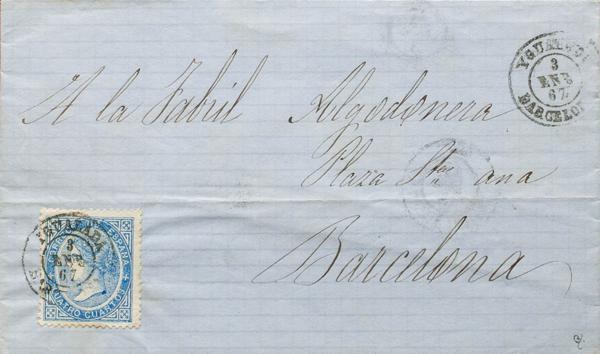 YGUALADA
3
ENE
67
BARCELO
A la Fabril Algodonera
Plaza Sta ana
Barcelona
YGUALADA
3
ENE
67
ESPAÑA
CUATRO CUARTOS